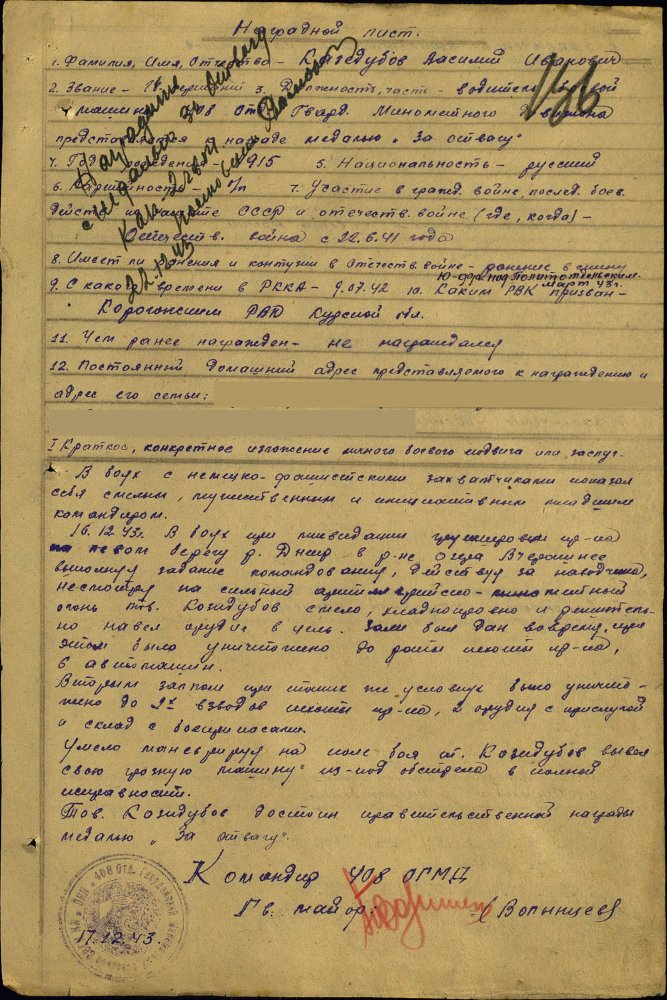 Наградной лист.
1. Фамилия, Имя, Отчество - Казедубов Василий Иванович
2. Звание - 3. Должность, часть - водитель боевой
машины 408 Отд. Гвард. Минометного Дивизиона
представляется к награде медалью "За отвагу"
4. Год рождения 1915 5. Национальность - русский
6. Партийность - б/п 7. Участие в гражд. войне, послед. боев.
действ. по защите СССР и отечеств. войне (где, когда) -
Отечеств. война с 22.6.41 года
8. Имеет ли ранения и контузии в отечеств. войне - ранение в
Ю-фр. под Политотдельским
март 43 г.
9. С какого времени в РККА - 9.07.42 10. Каким РВК призван -
РВК Курской обл.
11. Чем ранее награжден - не награждался
12. Постоянный домашний адрес представляемого к награждению и
адрес его семьи:
I Краткое, конкретное изложение личного боевого подвига или заслуг.
В боях с немецко-фашистскими захватчиками показал
себя смелым, мужественным и инициативным младшим
командиром.
16.12.43 г. В боях при ликвидации группировки пр-ка
на левом берегу р. Днепр в р-не
выполняя задание командования, действуя за наводчика,
несмотря на сильный минометный
огонь тов. Козидубов смело, хладнокровно и решитель-
но навел орудие в цель. Залп был дан вовремя, при
этом было уничтожено до роты пехоты пр-ка,
6 автомашин.
Вторым залпом при таких же условиях было уничто-
жено до 2х взводов пехоты пр-ка, 2 орудия с прислугой
и склад с боеприпасами.
Умело маневрируя на поле боя т. Козидубов вывел
свою грозную машину из-под обстрела в полной
исправности.
Тов. Козидубов достоин правительственной награды
медалью "За отвагу".
Командир 408 ОГМД
Гв. майор: (Волынцев)
17.12.43
Наградить
медалью За Отвагу
22.12.43
186